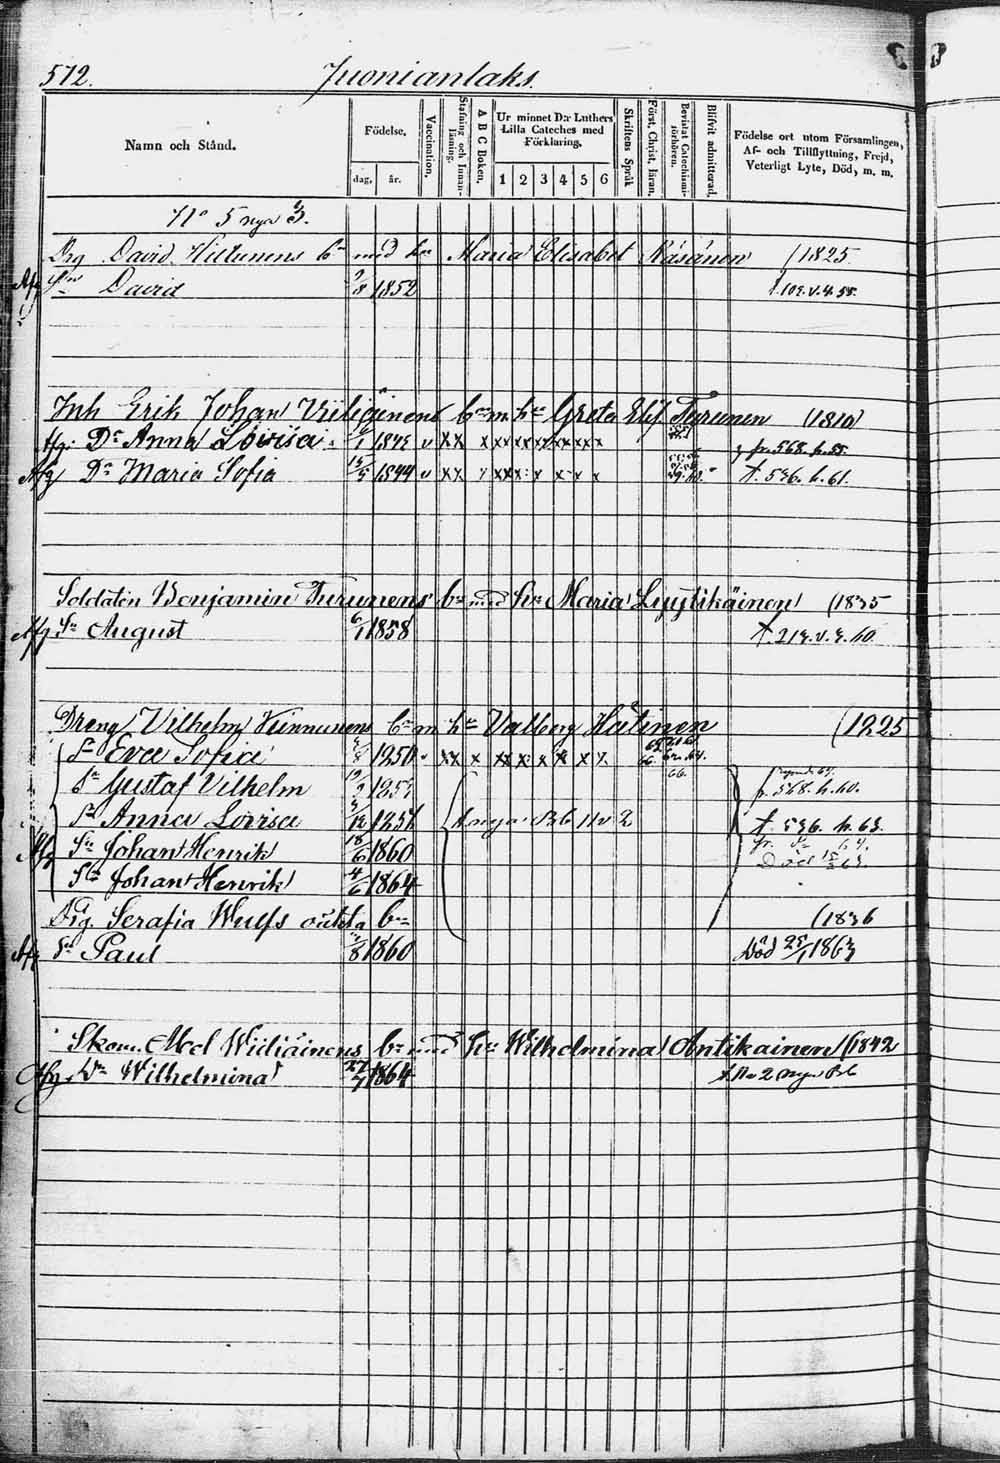 572. Juonianlaks.
Namn och Stånd. Födelse. dag. år. Vaccination. Stafning och Innanläsning. A B C Boken. Ur minnet D:r Luthers Lilla Cateches med Förklaring. 1 2 3 4 5 6 Skriftens Språk Först. Christ. läran. Bevistat Catechismiförhören. Blifvit admitterad. Födelse ort utom Församlingen, Af- och Tillflyttning, Frejd, Veterligt Lyte, Död, m. m.
N:o 5 nya 3.
Drg David Hiltunens bn med hu Maria Elisabet Räsänen (1825
Afg Sn David 8 1852 t. 103. v. 4. 55.
Inh Erik Johan Viiliäinens bn m. hu Greta Elis. Turunen (1810
Afg. Dr Anna Lovisa 1842 v x x x x x x x x x x x x fr. 568. h. 55.
Afg Dr Maria Sofia 15/5 1844 v x x x x x x x x x t. 536. h. 61.
Soldaten Benjamin Turunens bn med hu Maria Lyytikäinen (1835
Afg Sn August 6/1 1858 t. 213. v. 3. 60.
Dreng Vilhelm Kinnunens bn m hu Valborg Hätinen (1225
Eva Sofia 1250 x x x x x x x x x x 66.
66.
Gustaf Vilhelm 1253 fr. 568. h. 60.
Anna Lovisa 12 t nya Bb N:o 2 t. 536. h. 63.
Afg Sn Johan Henrik 18/6 1860 Död 63.
Sn Johan Henrik 4/6 1864
Pig. Serafia Wulfs oäkta bn (1836
Afg Sn Paul 8 1860 Död 25/1 1863
Skom. Abel Wiiliäinens bn med hu Wilhelmina Antikainen (1842
Afg. Dr Wilhelmina 27/7 1864 t. N:o 2 nya Bb